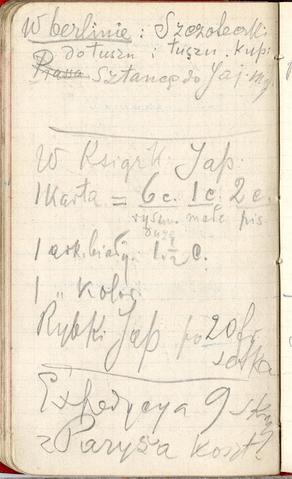 W berlinie: Szczoteczki
do tuszu i tuszu. kupi
Prassa Sztance do Jaj.
W Książk: Jap:
1 Karta = 6c. 1c. 2c.
rysun. małe pis
duże
1 ark. biały. 1 1/2 C.
1 " Kolor.
Rybki Jap po 20 fr
sztka
Expedycya 9
z Paryża koszt?